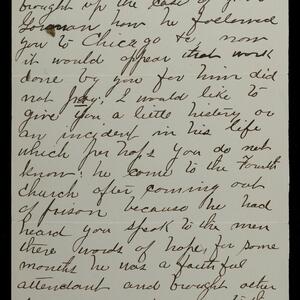 brought up the case of
how he followed
you to Chicago &c now
it would appear that work
done by you for him did
not pay; I would like to
give you a little history or
an incident in his life
which perhaps you do not
know: he come to the Fourth
church after coming out
of prison because he had
heard you speak to the men
there words of hope, for some
months he was a faithful
attendant and brought other